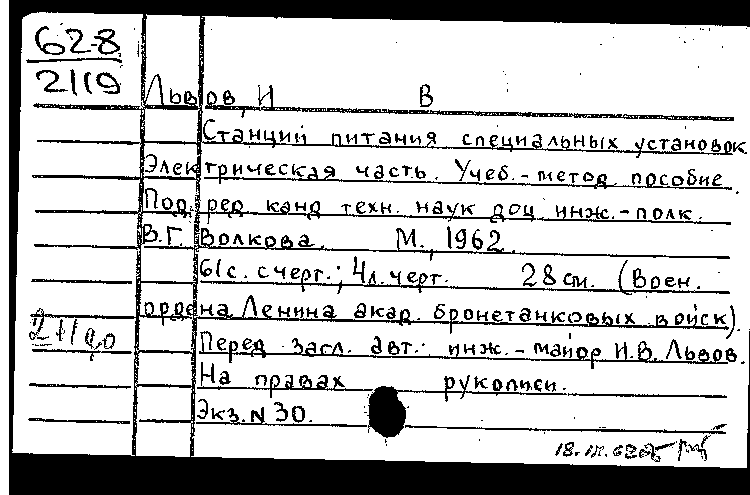 62-8
2119
Львов, И В
Станции питания специальных установок
Электрическая часть. Учеб.-метод пособие.
Под ред канд техн. наук доц инж.-полк.
В.Г. Волкова. М., 1962.
61с. с черт.; 4л. черт. 28 см. (Воен.
ордена Ленина акад. бронетанковых войск).
Перед загл. авт.: инж.-майор И.В. Львов.
На правах рукописи.
Экз. N 30.